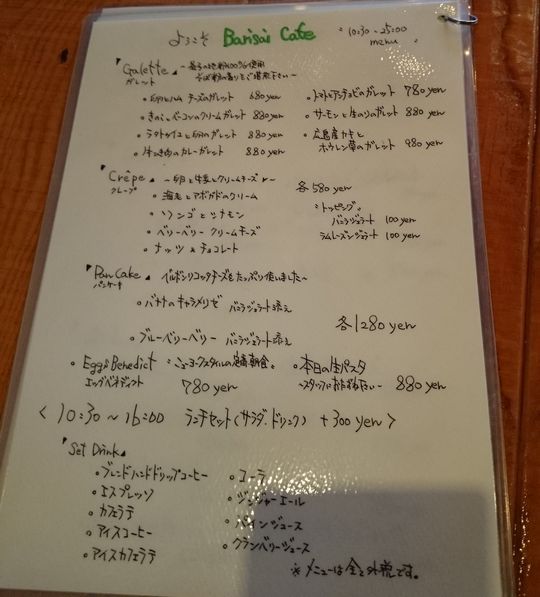 ようこそ Barisai Cafe 10:30 ~ 25:00
menu
「Galette」
ガレット
そば粉の香りをご堪能下さい~
• 卵とハム チーズのガレット 680yen
• トマトとアンチョビのガレット 780yen
• きのことベーコンのクリームガレット 880yen
• サーモンと生のりのガレット 880yen
• ラタトゥイユと卵のガレット 880yen
• 広島産カキと
ホウレン草のガレット 980yen
• 牛ひき肉のカレーガレット 880yen
「Crêpe」 ~卵と牛乳とクリームチーズ~ 各580yen
クレープ
• 海老とアボガドのクリーム
トッピング
• リンゴとシナモン
バニラジェラート 100yen
• ベリーベリー クリームチーズ
ラムレーズンジェラート 100yen
• ナッツ & チョコレート
「Pan Cake」 リコッタチーズをたっぷり使いました~
パンケーキ
• バナナのキャラメリゼ バニラジェラート添え
各1280yen
• ブルーベリーベリー バニラジェラート添え
• Eggs Benedict ニューヨークスタイルの定番朝食。
エッグベネディクト 780yen
• 本日の生パスタ
~スタッフにおたずね下さい~ 880yen
< 10:30 ~ 16:00 ランチセット(サラダ・ドリンク) +300yen >
「Set Drink」
• ブレンドハンドドリップコーヒー
• コーラ
• エスプレッソ
• ジンジャーエール
• カフェラテ
• パインジュース
• アイスコーヒー
• クランベリージュース
• アイスカフェラテ
※メニューは全て外税です。